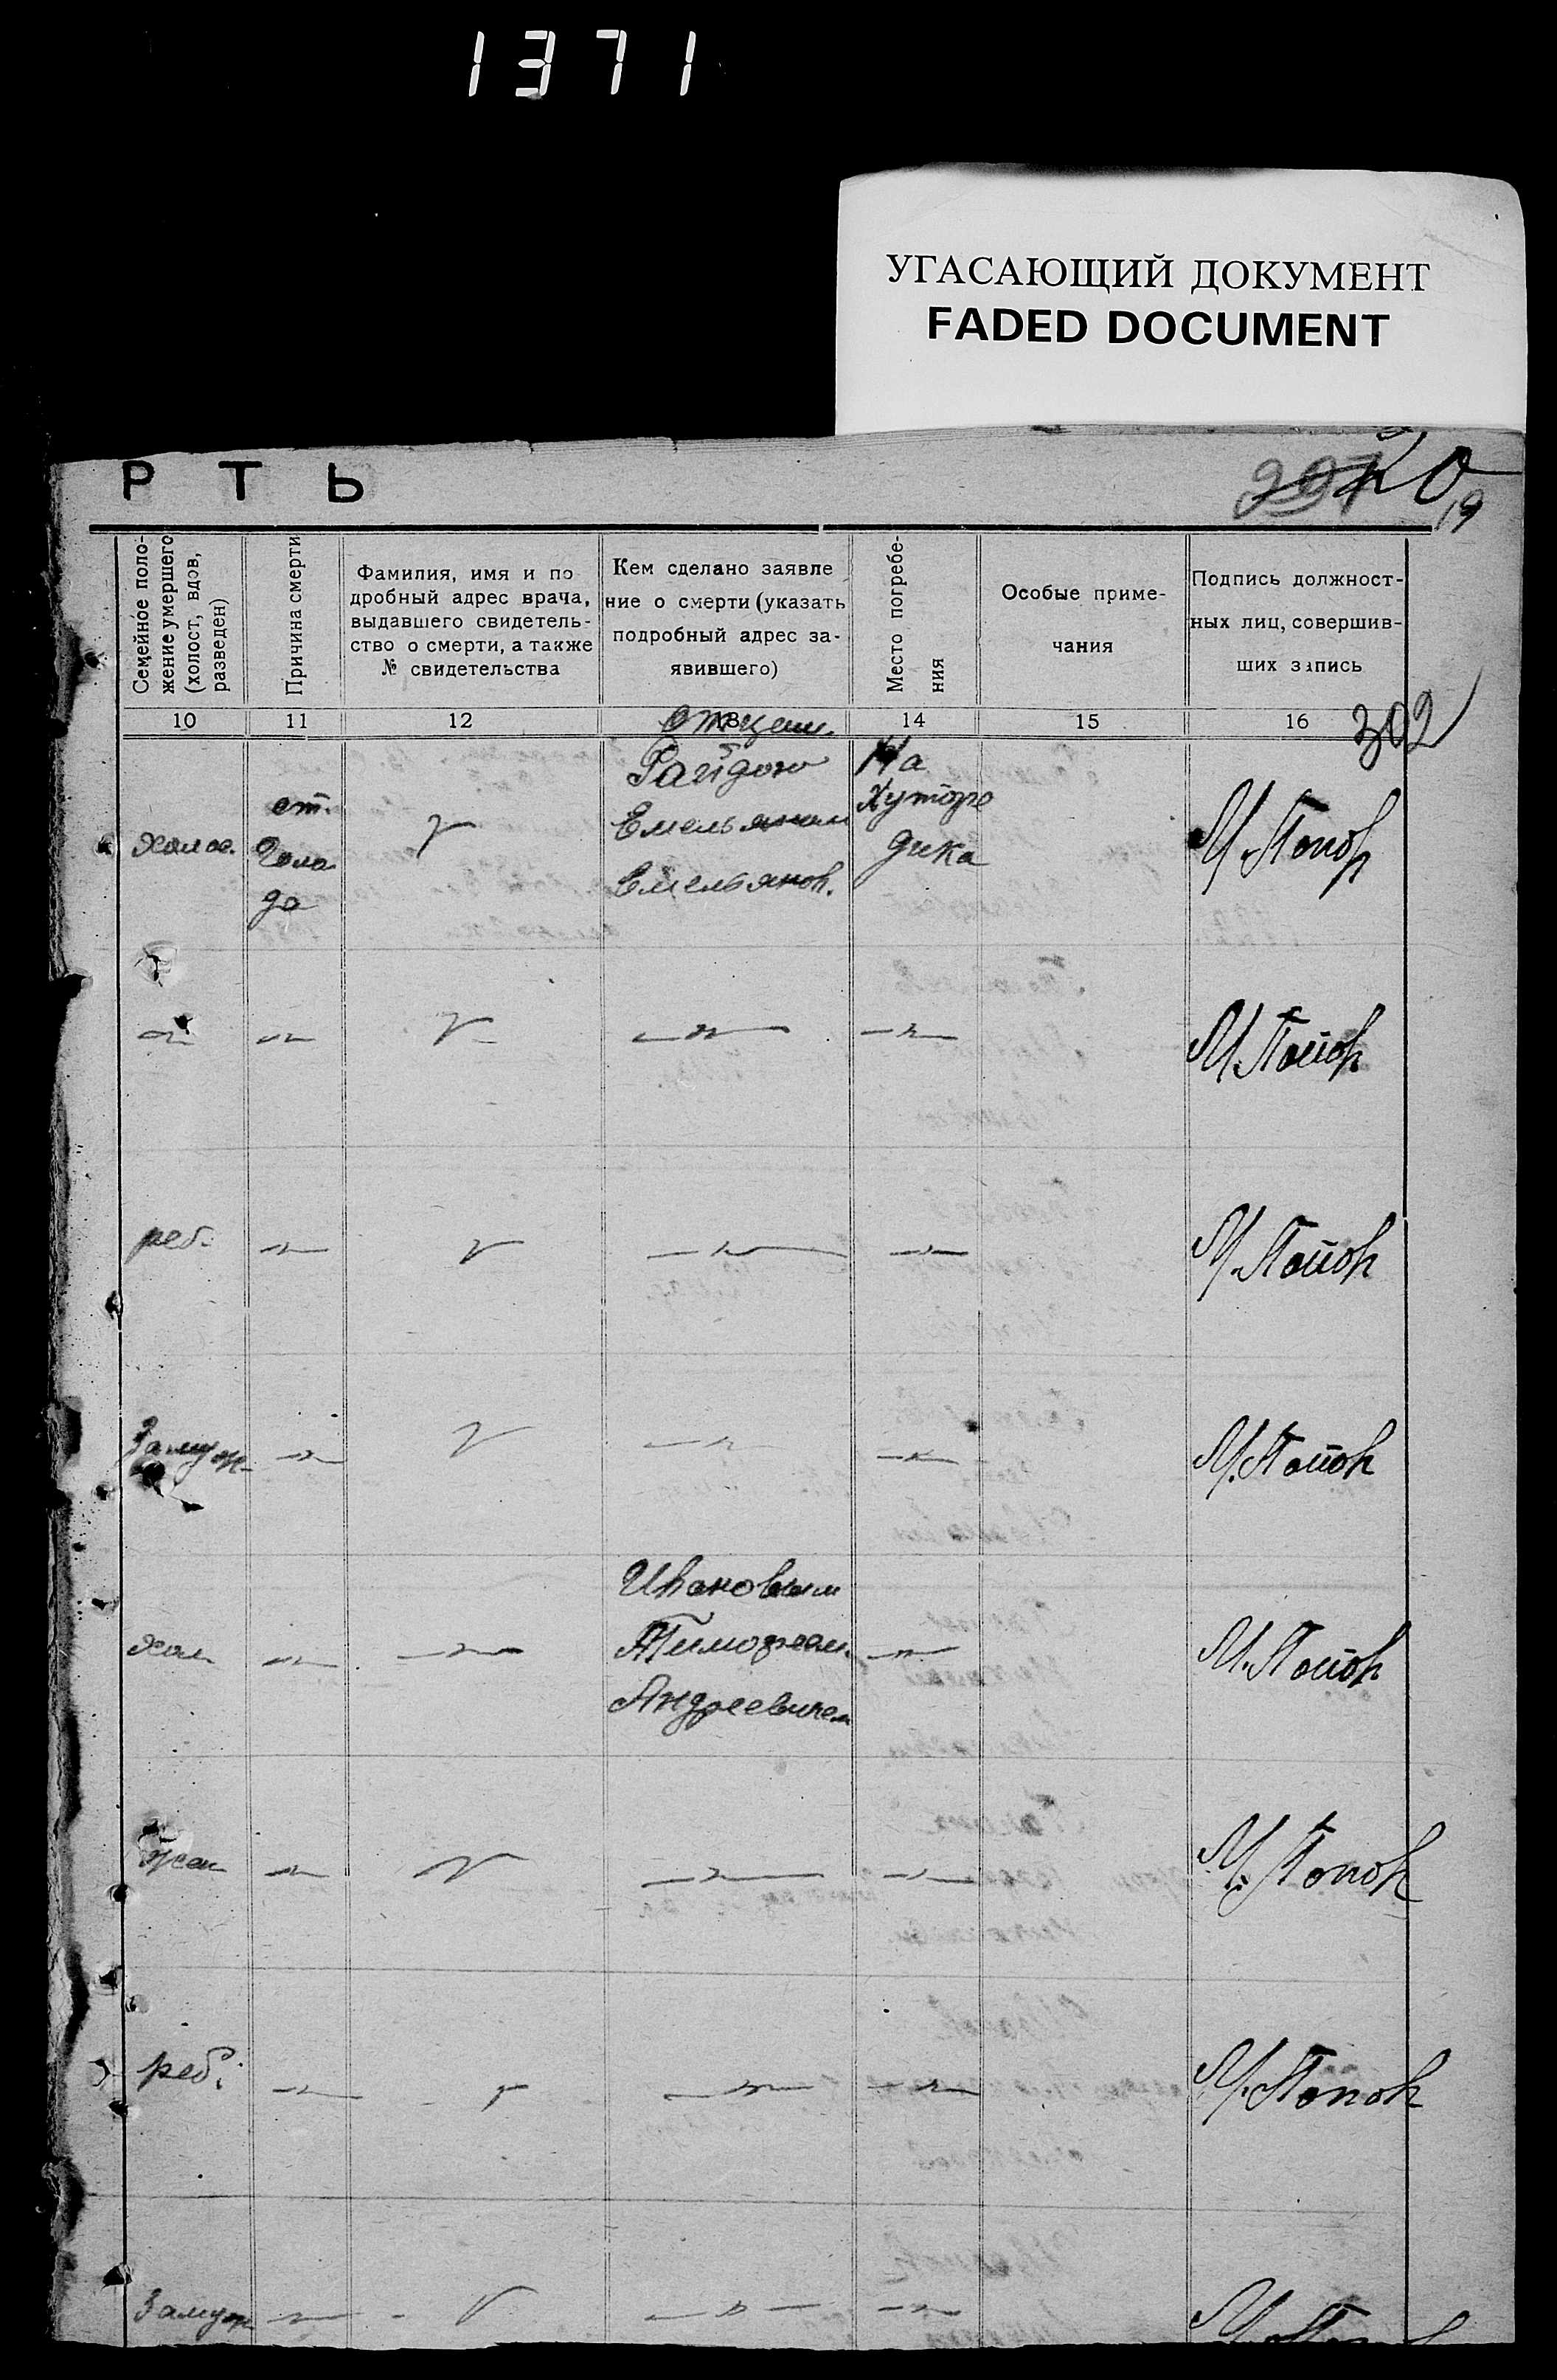 1371
УГАСАЮЩИЙ ДОКУМЕНТ
FADED DOCUMENT
Р Т Ь
19
Семейное поло-
жение умершего
(холост, вдов,
разведен)
Причина смерти
Фамилия, имя и по
дробный адрес врача,
выдавшего свидетель-
ство о смерти, а также
№ свидетельства
Кем сделано заявле
ние о смерти (указать
подробный адрес за-
явившего)
Место погребе-
ния
Особые приме-
чания
Подпись должност-
ных лиц, совершив-
ших запись
10
11
12
13
14
15
16
302
Отцем
На
Хуторе
дика
ст.
Гола
да
Емельяном
Емельянов.
холос.
М. Попов
М. Попов
реб.
М. Попов
Замуж
М. Попов
Ивановым
Тимофеем
Андреевичем
хол
М. Попов
жен
М. Попов
реб.
М. Попов
Замуж